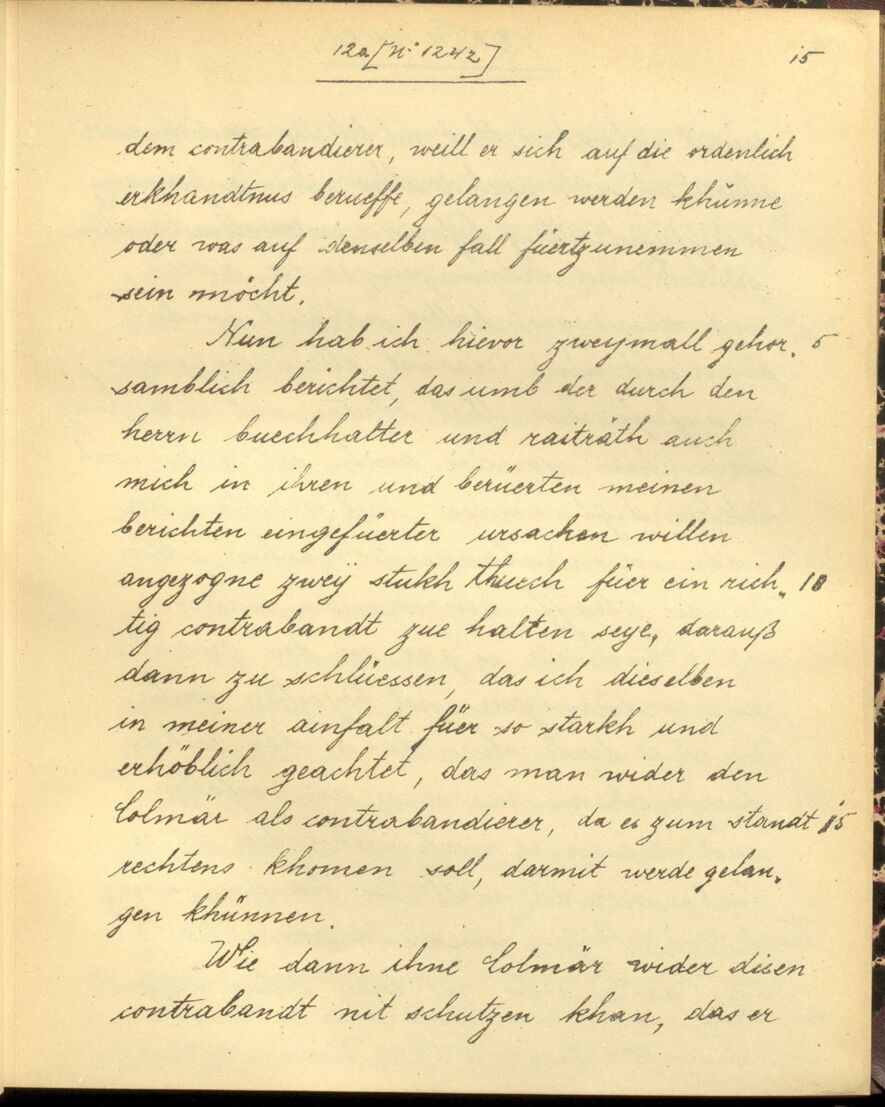 12a [N° 1242]
15
dem contrabandierer, weill er sich auf die ordenlich
erkhandtnus berueffe, gelangen werden khünne
oder was auf denselben fall füertzunemmen
sein möcht.
Nun hab ich hievor zweymall gehor„ 5
samblich berichtet, das umb der durch den
herrn buechhalter und raiträth auch
mich in ihren und berüerten meinen
berichten eingefüerter ursachen willen
angezogne zweÿ stukh thuech füer ein rich„ 10
tig contrabandt zue halten seye, darauß
dann zu schlüessen, das ich dieselben
in meiner ainfalt füer so starkh und
erhöblich geachtet, das man wider den
Colmär als contrabandierer, da es zum standt 15
rechtens khomen soll, darmit werde gelan„
gen khünnen.
Wie dann ihne Colmär wider disen
contrabandt nit schutzen khan, das er